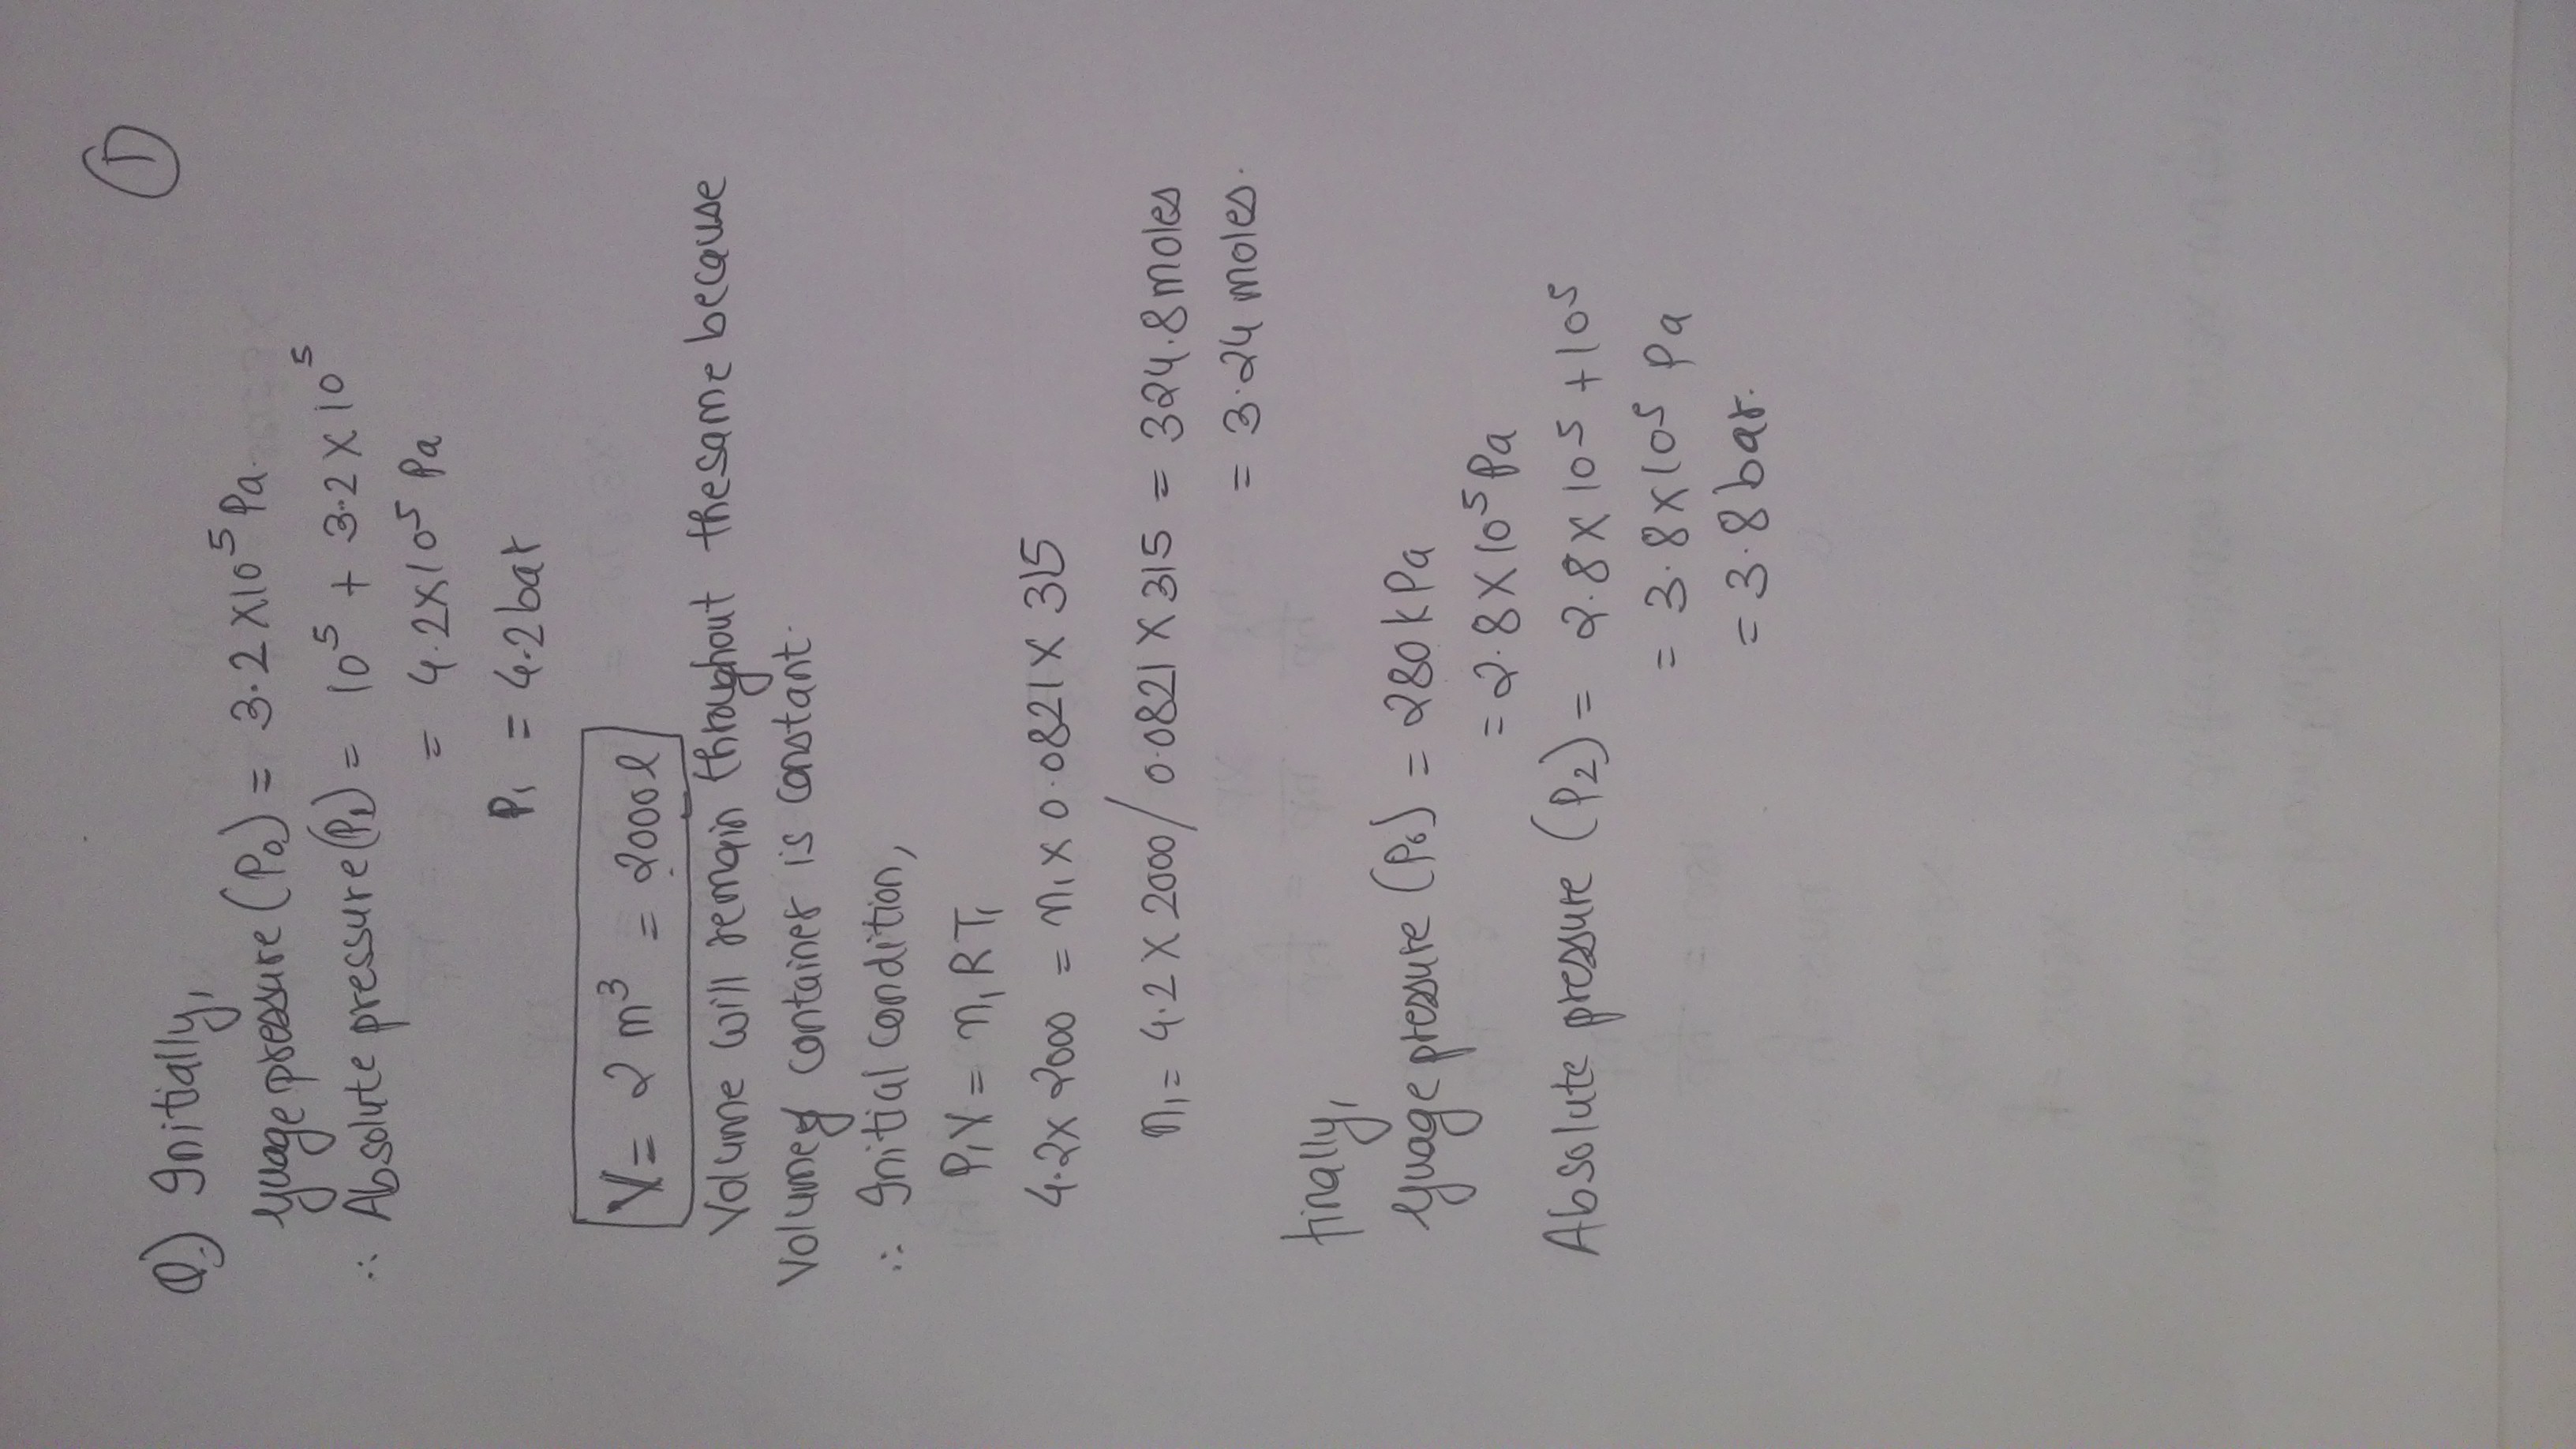 ①
Q.) Initially,
guage pressure (P₀) = 3.2 X10⁵ Pa.
∴ Absolute pressure (P₁) = 10⁵ + 3.2 X 10⁵
= 4.2X10⁵ Pa
P₁ = 4.2 bar
V = 2 m³ = 2000 l
Volume will remain throughout the same because
Volume of container is constant.
∴ Initial Condition,
P₁V = n₁RT₁
4.2 x 2000 = n₁ x 0.0821 X 315
n₁ = 4.2 X 2000 / 0.0821 X 315 = 324.8 moles
= 3.24 moles.
finally,
guage pressure (P₀) = 280 kPa
= 2.8 X10⁵ Pa
Absolute pressure (P₂) = 2.8 X 10⁵ + 10⁵
= 3.8 X 10⁵ Pa
= 3.8 bar.